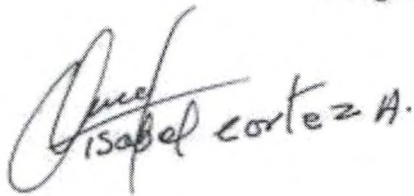 isabel cortez A.